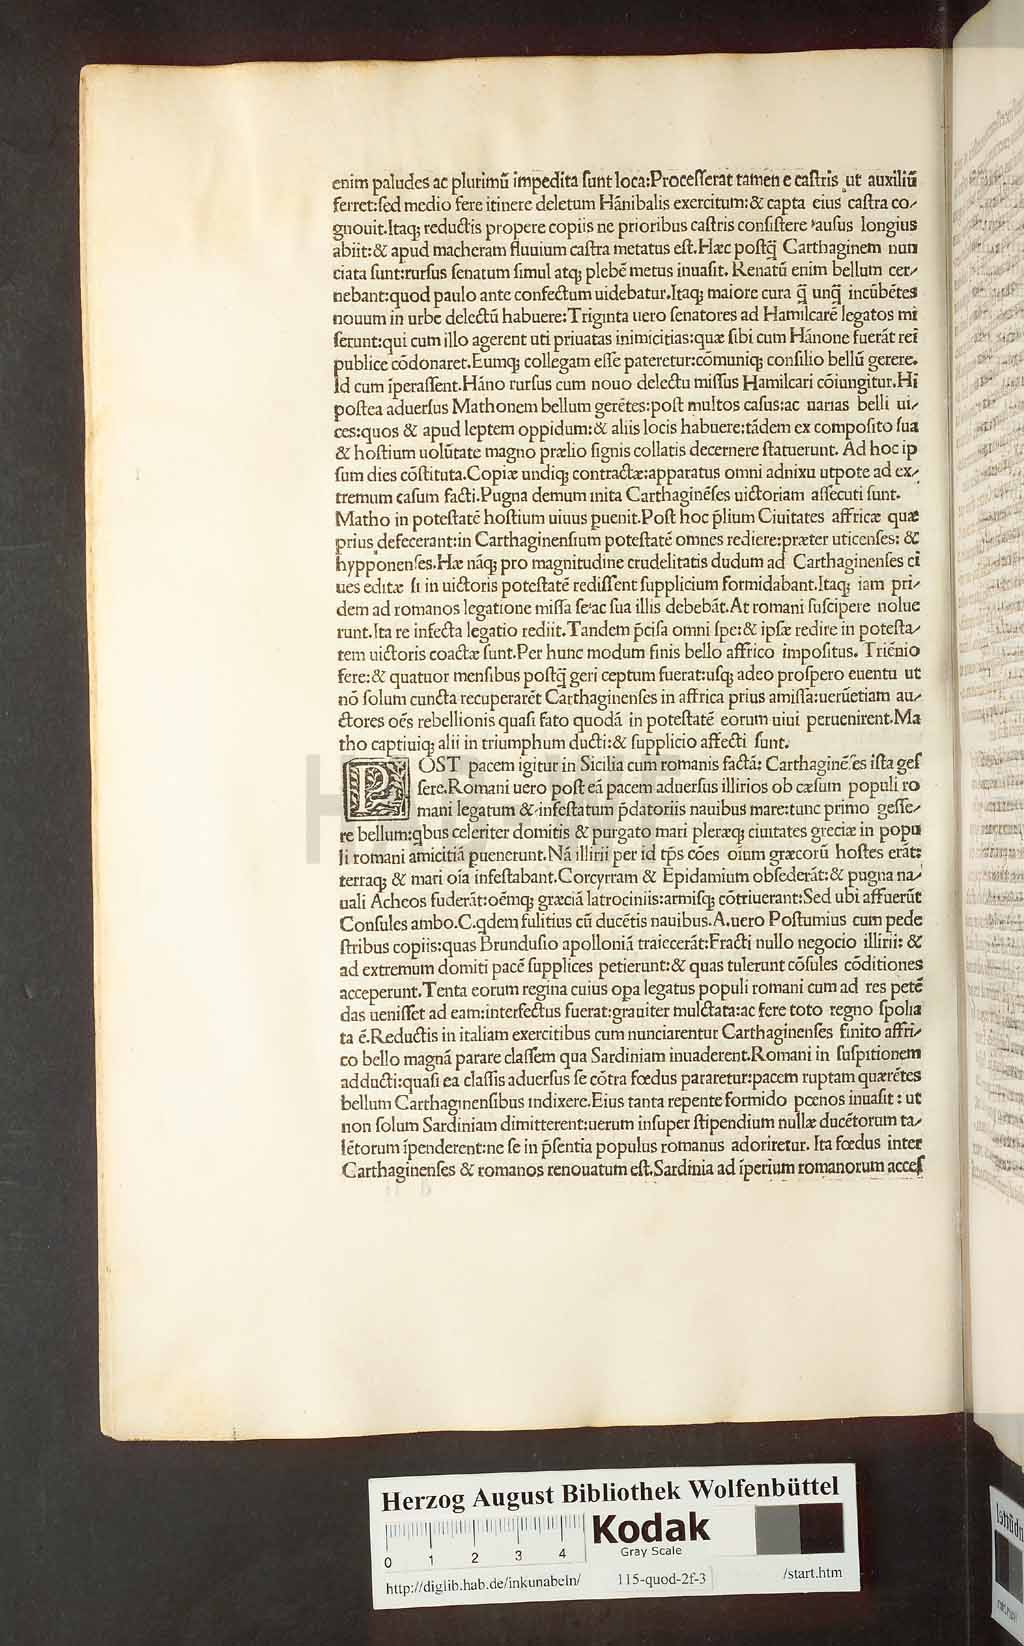 enim paludes ac plurimū impedita ſunt loca:Proceſſerat tamen e caſtris ut auxiliū
ferret:ſed medio fere itinere deletum Hānibalis exercitum:& capta eius caſtra co-
gnouit.Itaq; reductis propere copiis ne prioribus caſtris conſiſtere auſus longius
abiit:& apud macheram fluuium caſtra metatus eſt.Hæc poſtq̄ Carthaginem nun
ciata ſunt:rurſus ſenatum ſimul atq; plebē metus inuaſit. Renatū enim bellum cer-
nebant:quod paulo ante confectum uidebatur.Itaq; maiore cura q̄ unq̄ incūbētes
nouum in urbe delectū habuere:Triginta uero ſenatores ad Hamilcarē legatos mi
ſerunt:qui cum illo agerent uti priuatas inimicitias:quæ ſibi cum Hānone fuerāt rei
publice cōdonaret.Eumq; collegam eſſe pateretur:cōmuniq; conſilio bellū gerere.
Id cum īperaſſent.Hāno rurſus cum nouo delectu miſſus Hamilcari cōiungitur.Hi
poſtea aduerſus Mathonem bellum gerētes:poſt multos caſus:ac uarias belli ui-
ces:quos & apud leptem oppidum:& aliis locis habuere:tādem ex compoſito ſua
& hoſtium uolūtate magno prælio ſignis collatis decernere ſtatuerunt. Ad hoc ip
ſum dies cōſtituta.Copiæ undiq; contractæ:apparatus omni adnixu utpote ad ex-
tremum caſum facti.Pugna demum inita Carthaginēſes uictoriam aſſecuti ſunt.
Matho in poteſtatē hoſtium uiuus puenit.Poſt hoc p̄lium Ciuitates affricæ quæ
prius defecerant:in Carthaginenſium poteſtatē omnes rediere:præter uticenſes: &
hypponenſes.Hæ nāq; pro magnitudine crudelitatis dudum ad Carthaginenſes ci
ues editæ ſi in uictoris poteſtatē rediſſent ſupplicium formidabant.Itaq; iam pri-
dem ad romanos legatione miſſa ſe ac ſua illis debebāt.At romani ſuſcipere nolue
runt.Ita re infecta legatio rediit.Tandem p̄ciſa omni ſpe:& ipſæ redire in poteſta-
tem uictoris coactæ ſunt.Per hunc modum finis bello affrico impoſitus. Triēnio
fere:& quatuor menſibus poſtq̄ geri ceptum fuerat:uſq; adeo proſpero euentu ut
nō ſolum cuncta recuperarēt Carthaginenſes in affrica prius amiſſa:uerūetiam au-
ctores oēs rebellionis quaſi fato quodā in poteſtatē eorum uiui peruenirent.Ma
tho captiuiq; alii in triumphum ducti:& ſupplicio affecti ſunt.
POST pacem igitur in Sicilia cum romanis factā: Carthaginēſes iſta geſ
ſere.Romani uero poſt eā pacem aduerſus illirios ob cæſum populi ro
mani legatum & infeſtatum p̄datoriis nauibus mare:tunc primo geſſe-
re bellum:qbus celeriter domitis & purgato mari pleræq; ciuitates greciæ in popu
li romani amicitiā puenerunt.Nā illirii per id tp̄s cōes oium græcorū hoſtes erāt:
terraq; & mari oīa infeſtabant.Corcyrram & Epidamium obſederāt:& pugna na-
uali Acheos fuderāt:oēmq; græciā latrociniis:armiſq; cōtriuerant:Sed ubi affuerūt
Conſules ambo.C.qdem fulitius cū ducētis nauibus.A.uero Poſtumius cum pede
ſtribus copiis:quas Brunduſio apolloniā traiecerāt:Fracti nullo negocio illirii: &
ad extremum domiti pacē ſupplices petierunt:& quas tulerunt cōſules cōditiones
acceperunt.Tenta eorum regina cuius opa legatus populi romani cum ad res petē
das ueniſſet ad eam:interfectus fuerat:grauiter mulctata:ac fere toto regno ſpolia
ta ē.Reductis in italiam exercitibus cum nunciarentur Carthaginenſes finito affri-
co bello magnā parare claſſem qua Sardiniam inuaderent.Romani in ſuſpitionem
adducti:quaſi ea claſſis aduerſus ſe cōtra fœdus pararetur:pacem ruptam quærētes
bellum Carthaginenſibus indixere.Eius tanta repente formido pœnos inuaſit : ut
non ſolum Sardiniam dimitterent:uerum inſuper ſtipendium nullæ ducētorum ta-
lētorum īpenderent:ne ſe in p̄ſentia populus romanus adoriretur. Ita fœdus inter
Carthaginenſes & romanos renouatum eſt.Sardinia ad īperium romanorum acceſ
HAB WF
Herzog August Bibliothek Wolfenbüttel
0 1 2 3 4
Kodak
Gray Scale
http://diglib.hab.de/inkunabeln/ 115-quod-2f-3 /start.htm